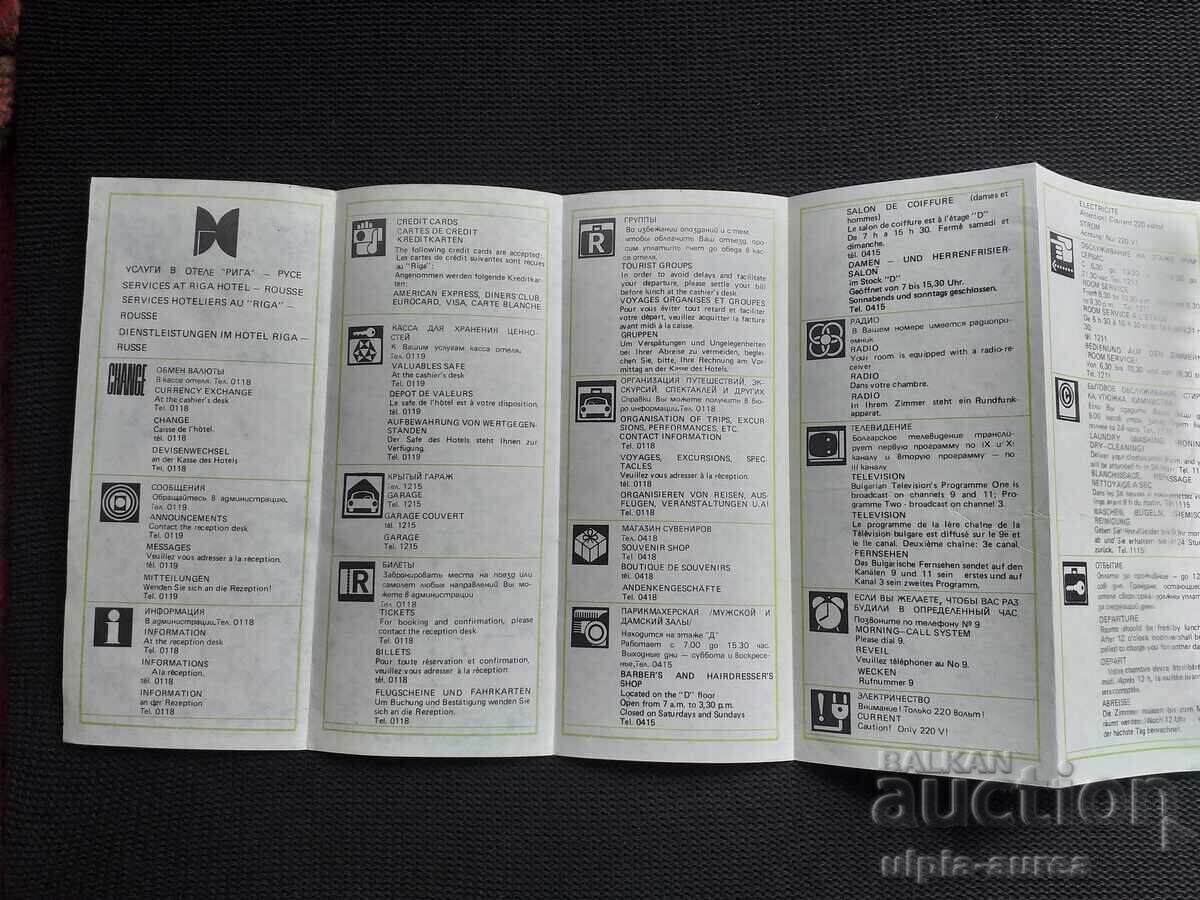 УСЛУГИ В ОТЕЛЕ "РИГА" — РУСЕ
SERVICES AT RIGA HOTEL — ROUSSE
SERVICES HOTELIERS AU "RIGA" —
ROUSSE
DIENSTLEISTUNGEN IM HOTEL RIGA —
RUSSE
CHANGE
ОБМЕН ВАЛЮТЫ
В кассе отеля. Тел. 0118
CURRENCY EXCHANGE
At the cashier's desk
Tel. 0118
CHANGE
Caisse de l'hôtel.
tél. 0118
DEVISENWECHSEL
an der Kasse des Hotels
Tel. 0118
СООБЩЕНИЯ
Обращайтесь в администрацию,
Тел. 0119
ANNOUNCEMENTS
Contact the reception desk
Tel. 0119
MESSAGES
Veuillez vous adresser à la réception.
tél. 0119
MITTEILUNGEN
Wenden Sie sich an die Rezeption!
Tel. 0119
i
ИНФОРМАЦИЯ
В администрации, Тел. 0118
INFORMATION
At the reception desk
Tel. 0118
INFORMATIONS
A la réception.
tél. 0118
INFORMATION
an der Rezeption
Tel. 0118
CREDIT CARDS
CARTES DE CREDIT
KREDITKARTEN
The following credit cards are accepted:
Les cartes de crédit suivantes sont reçues
au "Riga":
Angenommen werden folgende Kreditkar-
ten:
AMERICAN EXPRESS, DINERS'CLUB,
EUROCARD, VISA, CARTE BLANCHE
КАССА ДЛЯ ХРАНЕНИЯ ЦЕННО-
СТЕЙ
К Вашим услугам касса отеля,
Тел. 0119
VALUABLES SAFE
At the cashier's desk
Tel. 0119
DEPOT DE VALEURS
Le safe de l'hôtel est à votre disposition.
tél. 0119
AUFBEWAHRUNG VON WERTGEGEN-
STÄNDEN
Der Safe des Hotels steht Ihnen zur
Verfügung.
Tel. 0119
КРЫТЫЙ ГАРАЖ
Тел. 1215
GARAGE
Tel. 1215
GARAGE COUVERT
tél. 1215
GARAGE
Tel. 1215
R
БИЛЕТЫ
Забронировать места на поезд или
самолет любых направлений Вы мо-
жете в администрации
Тел. 0118
TICKETS
For booking and confirmation, please
contact the reception desk.
Tel. 0118
BILLETS
Pour toute réservation et confirmation,
veuillez vous adresser à la réception.
tél. 0118
FLUGSCHEINE UND FAHRKARTEN
Um Buchung und Bestätigung wenden Sie
sich an die Rezeption.
Tel. 0118
R
ГРУППЫ
Во избежании опозданий и с тем,
чтобы облегчить Ваш отъезд, про-
сим уплатить счет до обеда в кас-
се отеля.
TOURIST GROUPS
In order to avoid delays and facilitate
your departure, please settle your bill
before lunch at the cashier's desk.
VOYAGES ORGANISES ET GROUPES
Pour vous éviter tout retard et faciliter
votre départ, veuillez acquitter la facture
avant midi à la caisse.
GRUPPEN
Um Verspätungen und Ungelegenheiten
bei Ihrer Abreise zu vermeiden, beglei-
chen Sie, bitte, Ihre Rechnung am Vor-
mittag an der Kasse des Hotels.
ОРГАНИЗАЦИЯ ПУТЕШЕСТВИЙ, ЭК-
СКУРСИЙ, СПЕКТАКЛЕЙ И ДРУГИХ
Справки Вы можете получить в бю-
ро информации, Тел. 0118
ORGANISATION OF TRIPS, EXCUR-
SIONS, PERFORMANCES, ETC.
CONTACT INFORMATION
Tel. 0118
VOYAGES, EXCURSIONS, SPEC-
TACLES
Veuillez vous adresser à la réception.
tél. 0118
ORGANISIEREN VON REISEN, AUS-
FLÜGEN, VERANSTALTUNGEN U.A!
Tel. 0118
МАГАЗИН СУВЕНИРОВ
Тел. 0418
SOUVENIR SHOP
Tel. 0418
BOUTIQUE DE SOUVENIRS
tél. 0418
ANDENKENGESCHÄFTE
Tel. 0418
ПАРИКМАХЕРСКАЯ /МУЖСКОЙ И
ДАМСКИЙ ЗАЛЫ/
Находится на этаже "Д"
Работает с 7.00 до 15.30 час.
Выходные дни — суббота и воскресе-
нье, Тел. 0415
BARBER'S AND HAIRDRESSER'S
SHOP
Located on the "D" floor
Open from 7 a.m. to 3,30 p.m.
Closed on Saturdays and Sundays
Tel. 0415
SALON DE COIFFURE (dames et
hommes)
Le salon de coiffure est à l'étage "D"
De 7 h à 15 h 30. Fermé samedi et
dimanche.
tél. 0415
DAMEN - UND HERRENFRISIER-
SALON
im Stock "D"
Geöffnet von 7 bis 15,30 Uhr.
Sonnabends und sonntags geschlossen.
Tel. 0415
РАДИО
В Вашем номере имеется радиопри-
емник
RADIO
Your room is equipped with a radio-re-
ceiver
RADIO
Dans votre chambre.
RADIO
In Ihrem Zimmer steht ein Rundfunk-
apparat.
ТЕЛЕВИДЕНИЕ
Болгарское телевидение трансли-
рует первую программу по IX и XI
каналу и вторую программу — по
III каналу
TELEVISION
Bulgarian Television's Programme One is
broadcast on channels 9 and 11; Pro-
gramme Two - broadcast on channel 3.
TELEVISION
Le programme de la 1ère chaîne de la
Télévision bulgare est diffusé sur le 9e et
le 11e canal. Deuxième chaîne: 3e canal.
FERNSEHEN
Das Bulgarische Fernsehen sendet auf den
Kanälen 9 und 11 sein erstes und auf
Kanal 3 sein zweites Programm.
ЕСЛИ ВЫ ЖЕЛАЕТЕ, ЧТОБЫ ВАС РАЗ
БУДИЛИ В ОПРЕДЕЛЕННЫЙ ЧАС,
Позвоните по телефону № 9
MORNING-CALL SYSTEM
Please dial 9.
REVEIL
Veuillez téléphoner au No 9.
WECKEN
Rufnummer 9
ЭЛЕКТРИЧЕСТВО
Внимание! Только 220 Вольт!
CURRENT
Caution! Only 220 V!
ELECTRICITE
Attention! Courant 220
STROM
Achtung! Nur 220 V!
ОБСЛУЖИВАНИЕ НА ЭТАЖЕ
СЕРВИС
ROOM SERVICE
tél. 1211
BEDIENUNG AUF DEN ZIMMERN
(ROOM SERVICE)
Tel. 1211
БЫТОВОЕ ОБСЛУЖИВАНИЕ
LAUNDRY
DRY-CLEANING
BLANCHISSAGE, REPASSAGE
NETTOYAGE A SEC
WASCHEN, BÜGELN,
REINIGUNG
zurück. Tel. 1115
ОТБЫТИЕ
DEPARTURE
DEPART
ABREISE
der nächste Tag berechnet.
BALKAN
auction
ulpia-aurea